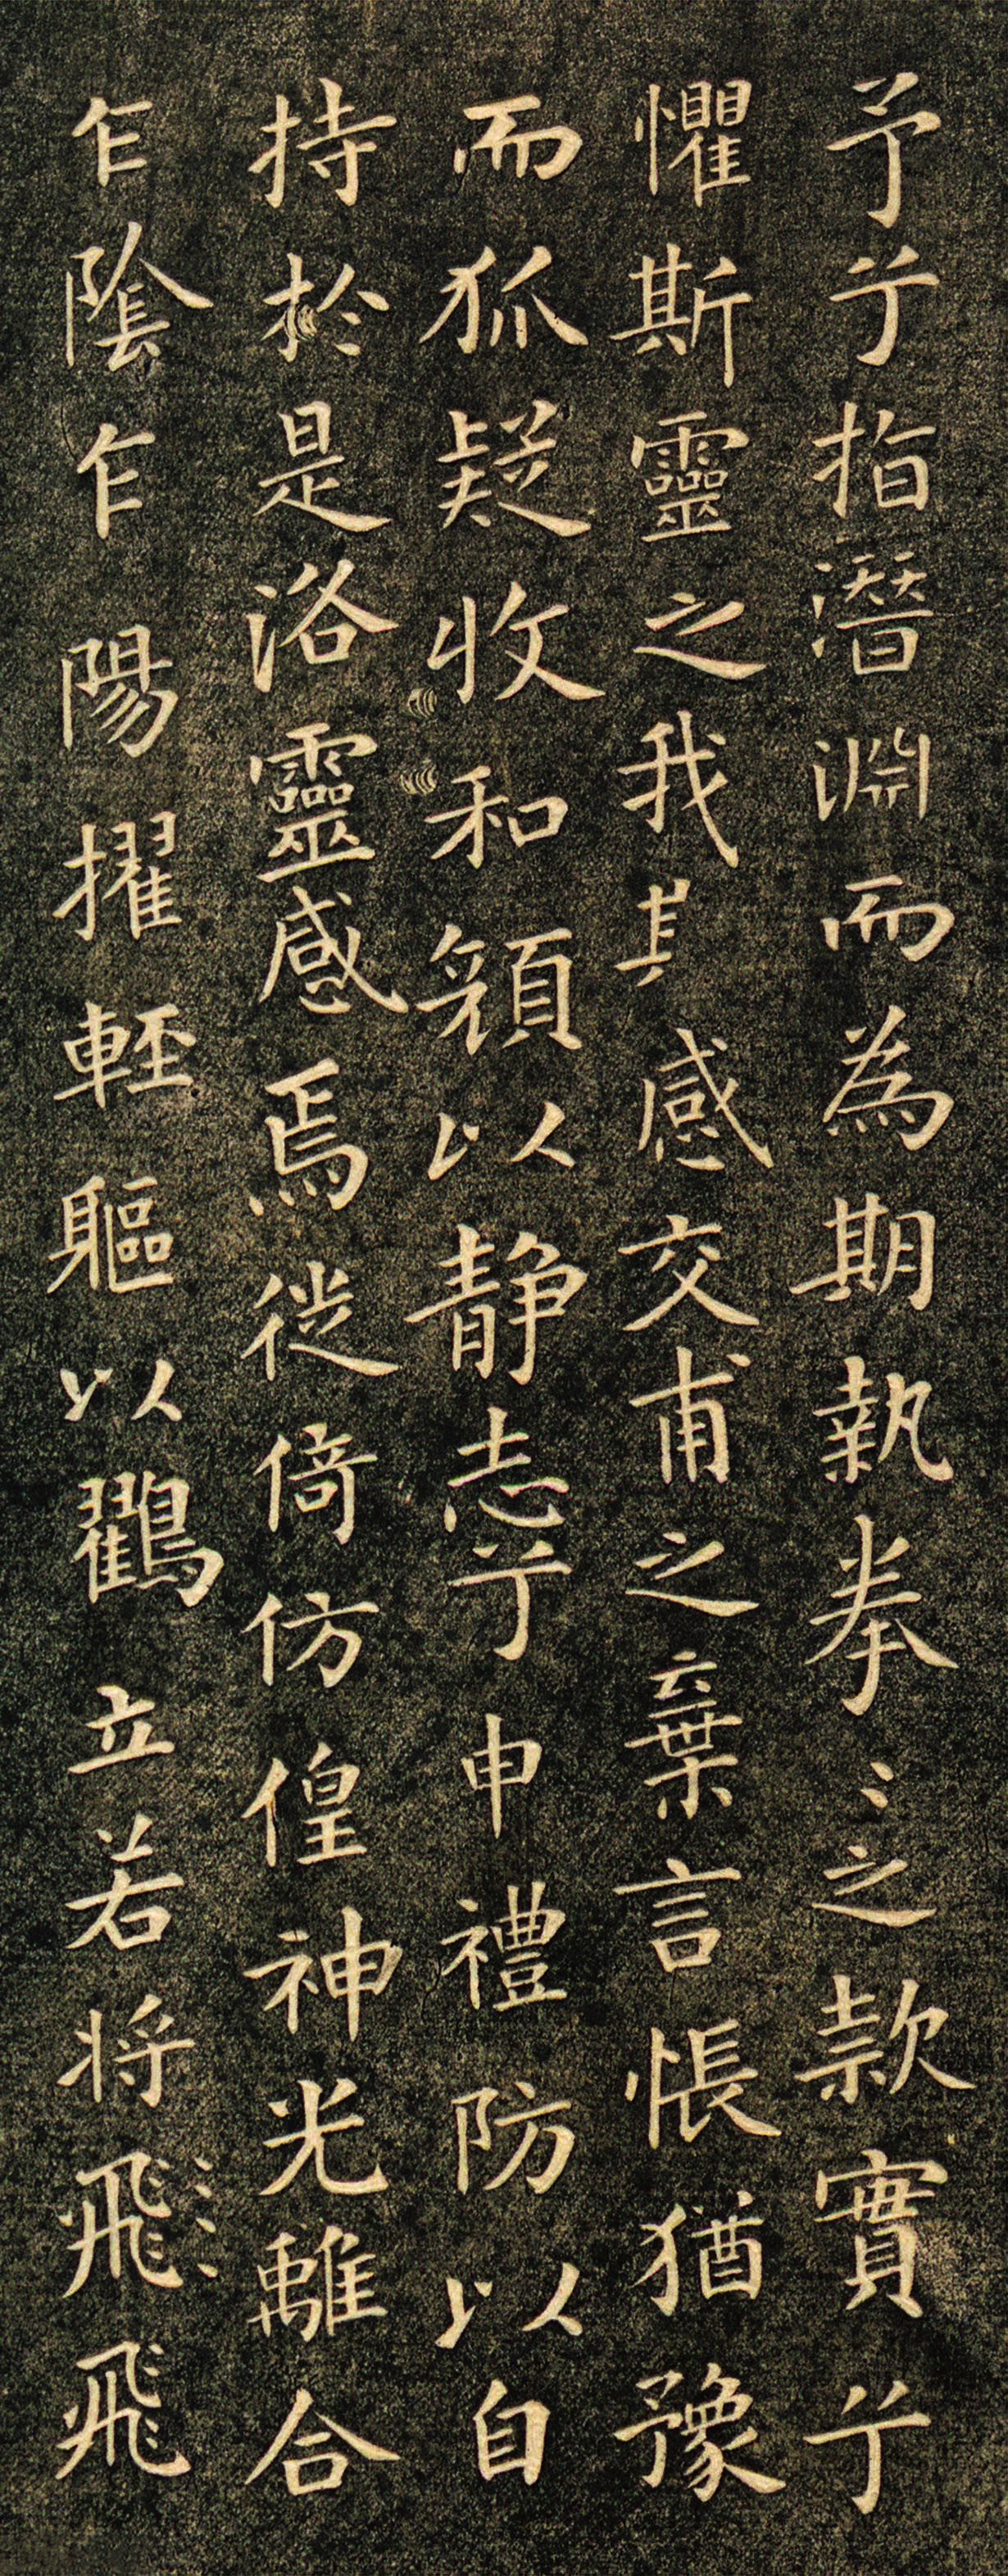 予兮指潛淵而為期執拳〻之款實兮
懼斯靈之我其感交甫之棄言悵猶豫
而狐疑收和顏以静志兮申禮防以自
持於是洛靈感焉徙倚仿偟神光離合
乍陰乍陽擢輕軀以鶴立若将飛飛